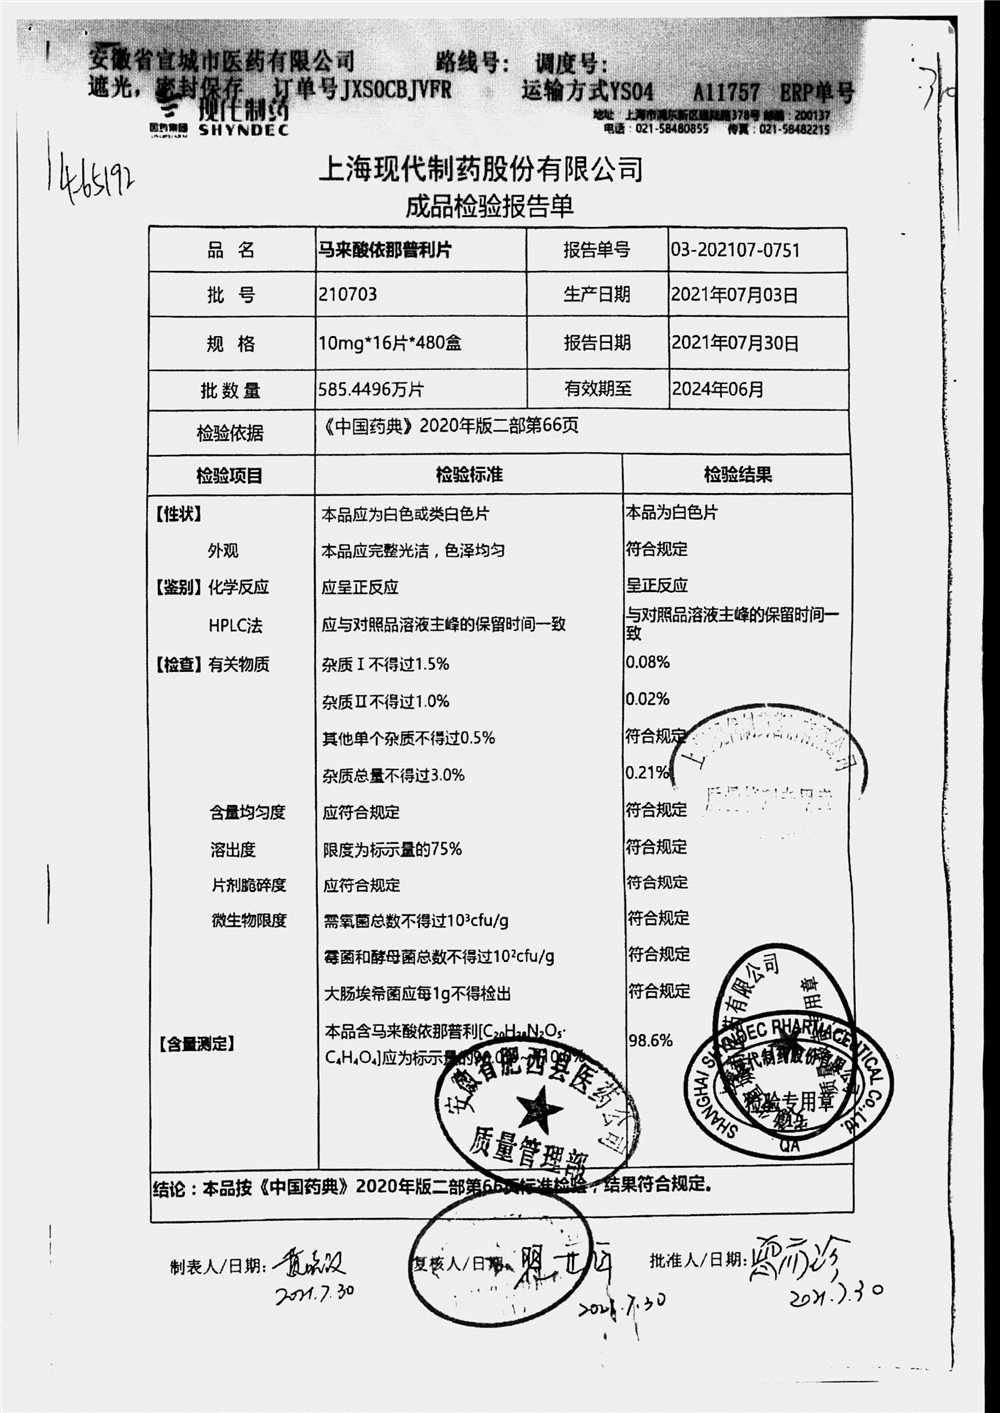 安徽省宣城市医药有限公司 路线号: 调度号:
遮光，密封保存 订单号JXSOCBJVFR 运输方式YS04 A11757 ERP单号
现代制药
国药集团 SHYNDEC
地址：上海市浦东新区建陆路378号 邮编：200137
电话：021-58480855 传真：021-58482215
上海现代制药股份有限公司
成品检验报告单
品 名 马来酸依那普利片 报告单号 03-202107-0751
批 号 210703 生产日期 2021年07月03日
规 格 10mg*16片*480盒 报告日期 2021年07月30日
批数量 585.4496万片 有效期至 2024年06月
检验依据 《中国药典》2020年版二部第66页
检验项目 检验标准 检验结果
【性状】 本品应为白色或类白色片 本品为白色片
外观 本品应完整光洁，色泽均匀 符合规定
【鉴别】化学反应 应呈正反应 呈正反应
HPLC法 应与对照品溶液主峰的保留时间一致 与对照品溶液主峰的保留时间一致
【检查】有关物质 杂质Ⅰ不得过1.5% 0.08%
杂质Ⅱ不得过1.0% 0.02%
其他单个杂质不得过0.5% 符合规定
杂质总量不得过3.0% 0.21%
含量均匀度 应符合规定 符合规定
溶出度 限度为标示量的75% 符合规定
片剂脆碎度 应符合规定 符合规定
微生物限度 需氧菌总数不得过10³cfu/g 符合规定
霉菌和酵母菌总数不得过10²cfu/g 符合规定
大肠埃希菌应每1g不得检出 符合规定
【含量测定】 本品含马来酸依那普利[C₂₀H₂₈N₂O₅· 98.6%
C₄H₄O₄]应为标示量的
安徽省肥西县医药公司
质量管理部
SHANGHAI SHYNDEC PHARMACEUTICAL Co.,Ltd.
检验专用章
QA
结论：本品按《中国药典》2020年版二部第66页标准检验，结果符合规定。
制表人/日期: 复核人/日期: 批准人/日期:
2021.7.30 2021.7.30 2021.7.30